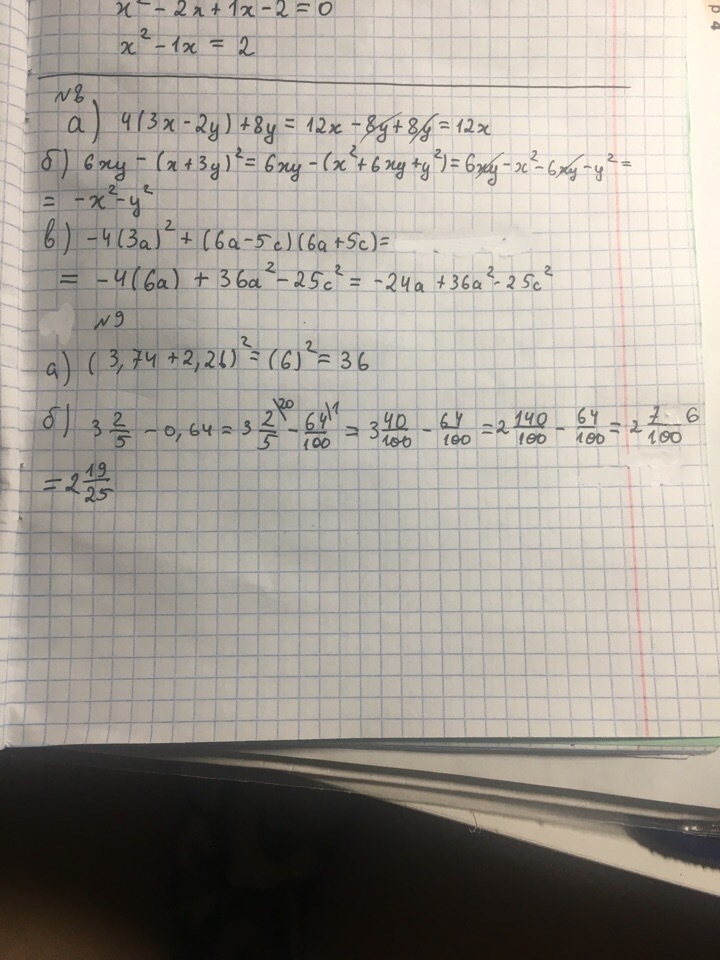 x² - 2x + 1x - 2 = 0
x² - 1x = 2
№8
а) 4(3x - 2y) + 8y = 12x - 8y + 8y = 12x
б) 6xy - (x + 3y)² = 6xy - (x² + 6xy + y²) = 6xy - x² - 6xy - y² =
= -x² - y²
в) -4(3a)² + (6a - 5c)(6a + 5c) =
= -4(6a) + 36a² - 25c² = -24a + 36a² - 25c²
№9
а) (3,74 + 2,26)² = (6)² = 36
б) 3 2/5 - 0,64 = 3 2/5 \20 - 64/100 \1 = 3 40/100 - 64/100 = 2 140/100 - 64/100 = 2 7 6/100
= 2 19/25